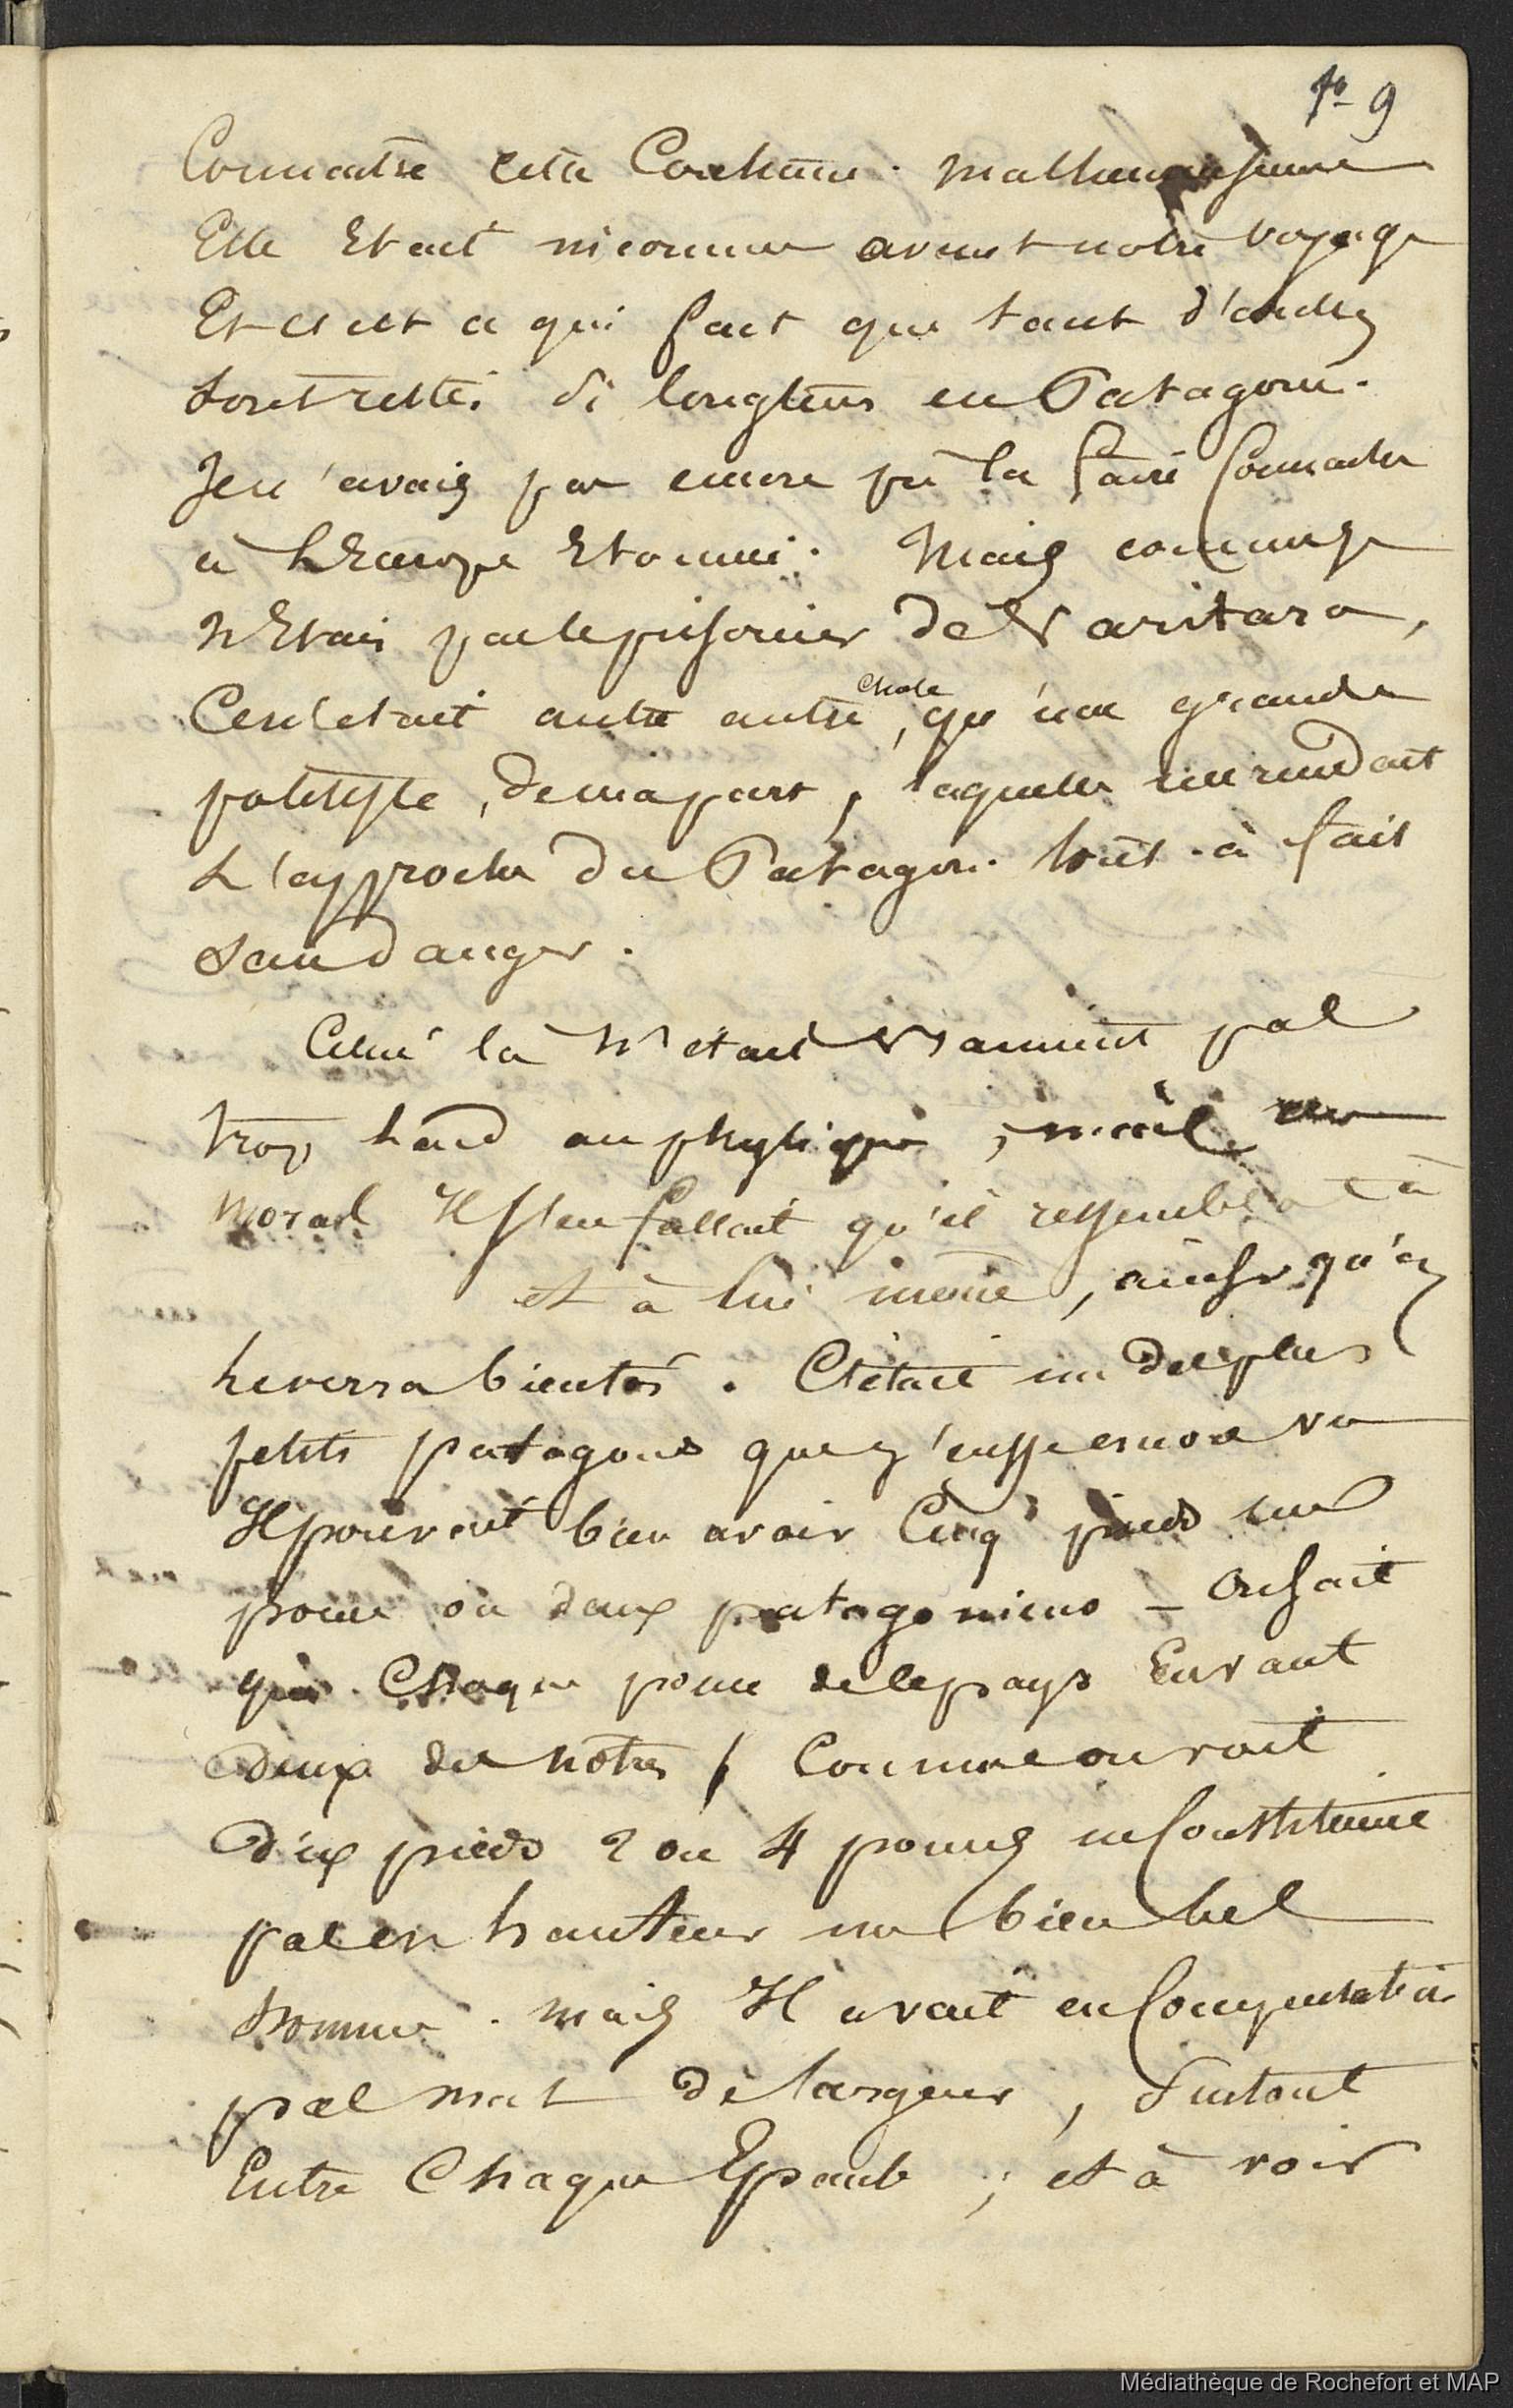 fo 9
Connaitre cette Coutume. malheureusement
Elle Etait inconnue avant notre voyage
Et c'est ce qui fait que tant d'andes
sont restés si longtems en Patagonie.
Je n'avais pas encore pû la faire Connaitre
à L'Europe Etonnée. Mais comme je
n'Etais pas le prisonnier de Varitara,
Ce n'etait autre autre chose, qu'une grande
politesse, de ma part, laquelle me rendait
L'approche du Patagon. tout-à fait
sans danger.
Celui là n'était vraiment pas
trop laid au physique, mais au
moral Il s'en fallait qu'il ressemblat à
et à lui même, ainsi qu'on
le verra bientôt. C'était un des plus
petits patagons que j'eusse encore vu
Il pouvait bien avoir Cinq pieds un
pouce ou deux patagoniens - On sait
que Chaque pouce de le pays En vaut
deux des nôtres, Comme on voit
Cinq pieds 2 ou 4 pouces ne Constituent
pas en hauteur un bien bel
homme. mais Il avait en Compensation
pas mal de largeur, Surtout
Entre Chaque Epaule ; et à voir
Médiathèque de Rochefort et MAP